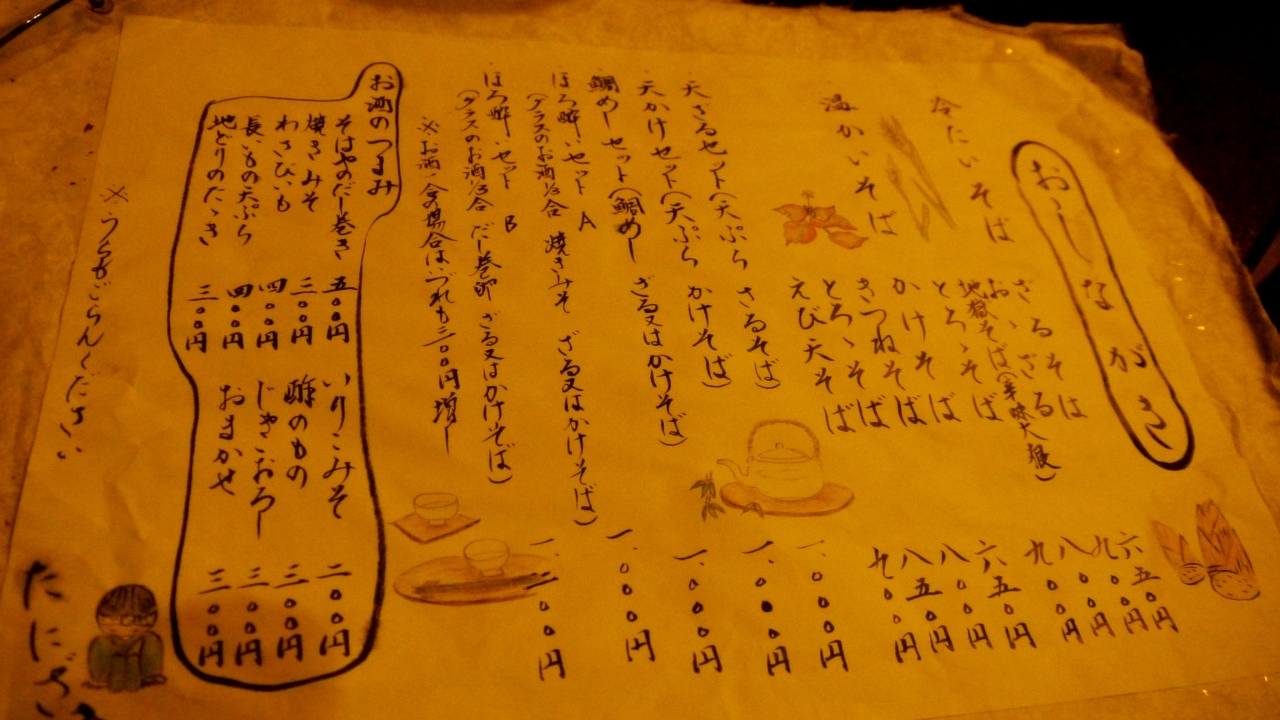 おゝしながき
冷たいそば
ざるそば 六五〇円
おゝざる 九〇〇円
地獄そば(辛味大根) 八〇〇円
とろゝそば 九〇〇円
温かいそば
かけそば 六五〇円
きつねそば 八〇〇円
とろゝそば 八五〇円
えび天そば 九〇〇円
天ざるセット(天ぷら ざるそば) 一、〇〇〇円
天かけセット(天ぷら かけそば) 一、〇〇〇円
鯛めしセット(鯛めし ざる又はかけそば) 一、〇〇〇円
ほろ酔いセット A 一、〇〇〇円
(グラスのお酒½合 焼きみそ ざる又はかけそば)
ほろ酔いセット B 一、〇〇〇円
(グラスのお酒½合 だし巻卵 ざる又はかけそば)
※お酒一合の場合はいづれも三〇〇円増し
お酒のつまみ
そばやのだし巻き 五〇〇円
焼きみそ 三〇〇円
わさびいも 四〇〇円
長いもの天ぷら 四〇〇円
地どりのたゝき 三〇〇円
いりこみそ 二〇〇円
酢のもの 三〇〇円
じゃこおろし 三〇〇円
おまかせ 三〇〇円
※うらもごらんください
たにざ